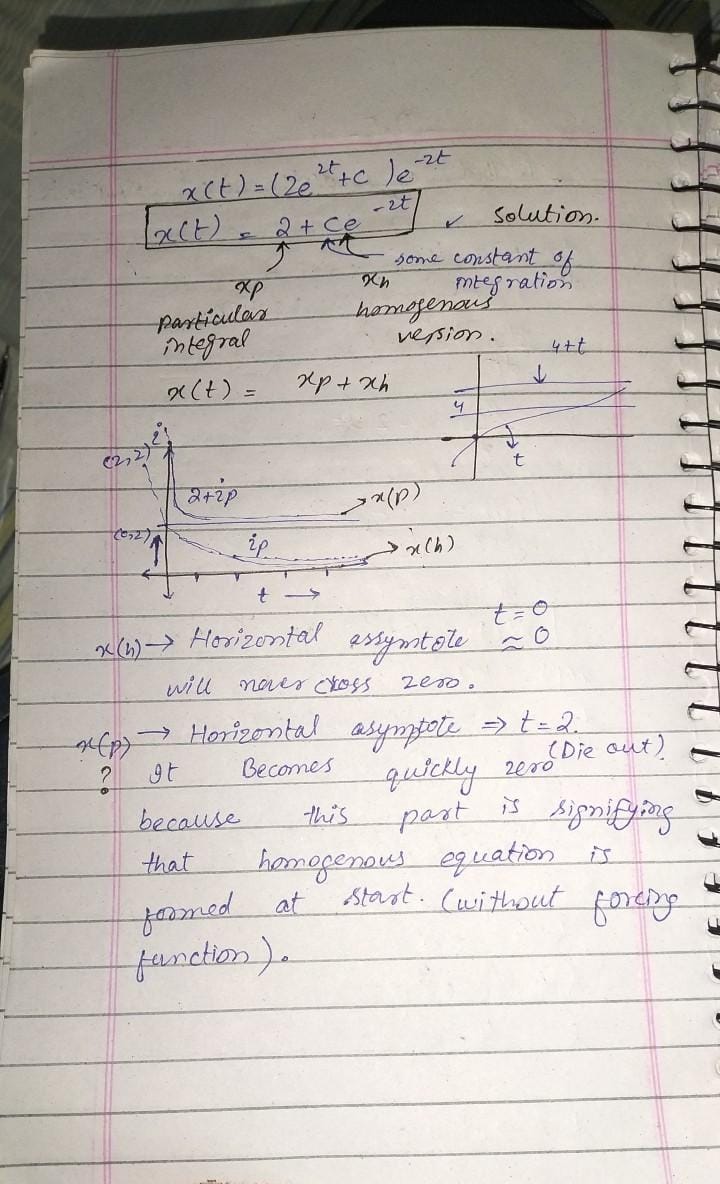 x(t) = (2e^2t + c )e^-2t
x(t) = 2 + ce^-2t ✓ solution.
some constant of
integration
xp xh
particular homogenous
integral version.
x(t) = xp + xh
4+t
4
t
i
(2,2)
2+ip x(p)
(0,2)
ip x(h)
t →
x(h) → Horizontal assymtote t=0
≈ 0
will never cross zero.
x(p) → Horizontal asymptote ⇒ t=2.
? It Becomes quickly zero (Die out)
because this part is signifying
that homogenous equation is
formed at start. (without forcing
function).